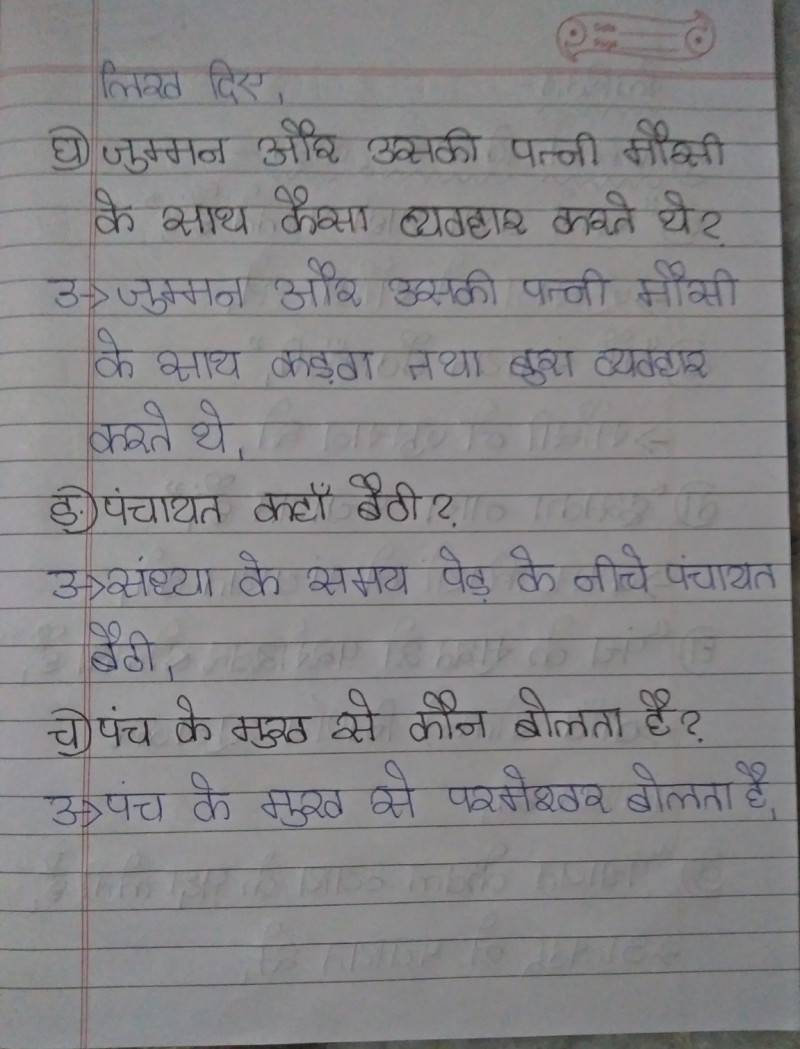 लिख दिए,
घ) जुम्मन और उसकी पत्नी मौसी
के साथ कैसा व्यवहार करते थे?
उ→ जुम्मन और उसकी पत्नी मौसी
के साथ कड़वा तथा बुरा व्यवहार
करते थे,
ङ) पंचायत कहाँ बैठी?
उ→ संध्या के समय पेड़ के नीचे पंचायत
बैठी,
च) पंच के मुख से कौन बोलता है?
उ→ पंच के मुख से परमेश्वर बोलता है,